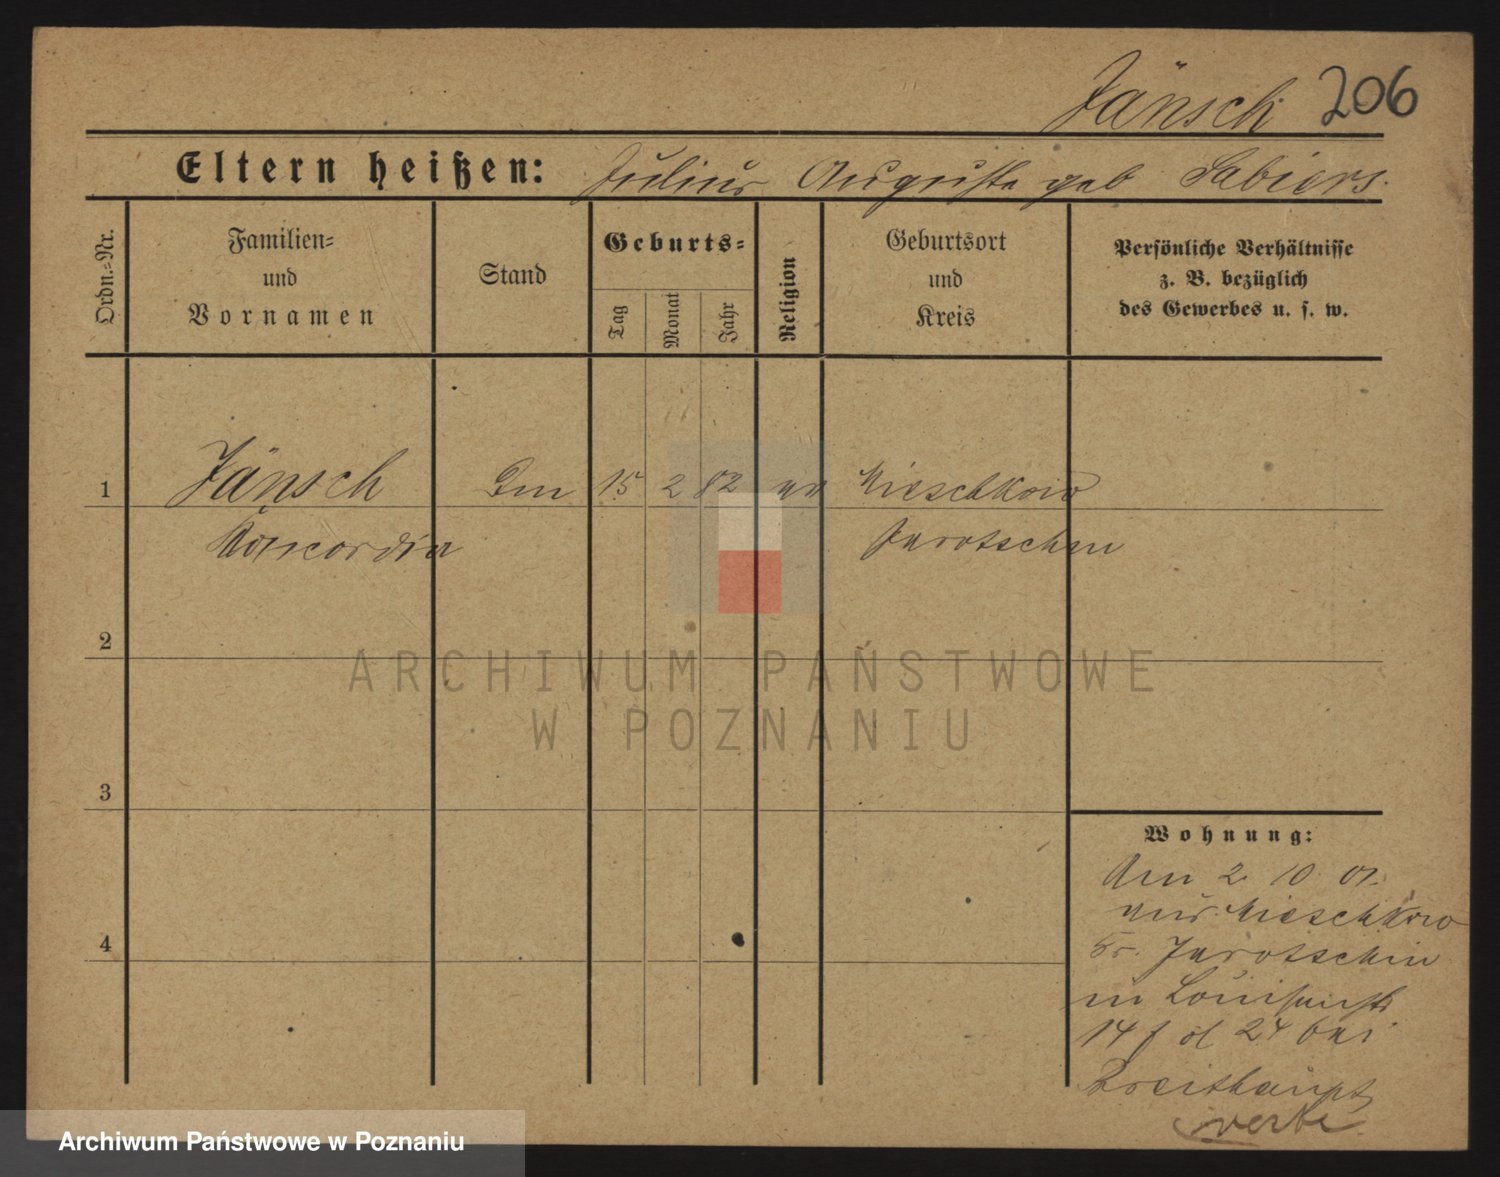 Jänsch 206
Eltern heißen: Julius Auguste geb Sabiers.
Ordn.-Nr.
Familien-
und
Vornamen
Stand
Geburts-
Tag
Monat
Jahr
Religion
Geburtsort
und
Kreis
Persönliche Verhältnisse
z. B. bezüglich
des Gewerbes u. s. w.
1 Jänsch 15 2 82 ev Mieschkow
Koncordia Jarotschin
2
3
4
ARCHIWUM PAŃSTWOWE
W POZNANIU
Wohnung:
Am 2. 10. 01.
aus Mieschkow
Kr. Jarotschin
in Louisenstr
14 24 bei
Breithaupt
Archiwum Państwowe w Poznaniu